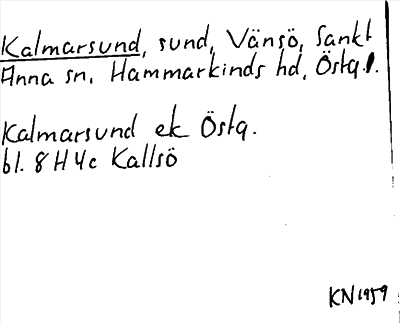 Kalmarsund, sund, Vänsö, Sankt
Anna sn, Hammarkinds hd, Östg.
Kalmarsund ek Östg.
bl. 8 H 4c Kallsö
KN 1959